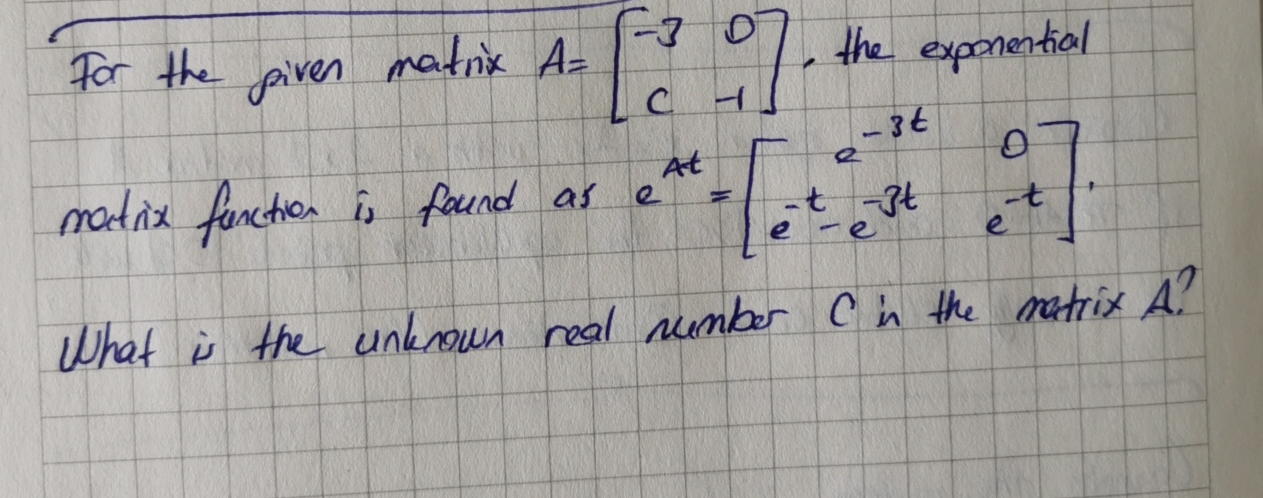 For the given matrix A= [-3 0
C -1], the exponential
matrix function is found as e^At = [e^-3t 0
e^-t - e^-3t e^-t].
What is the unknown real number C in the matrix A?